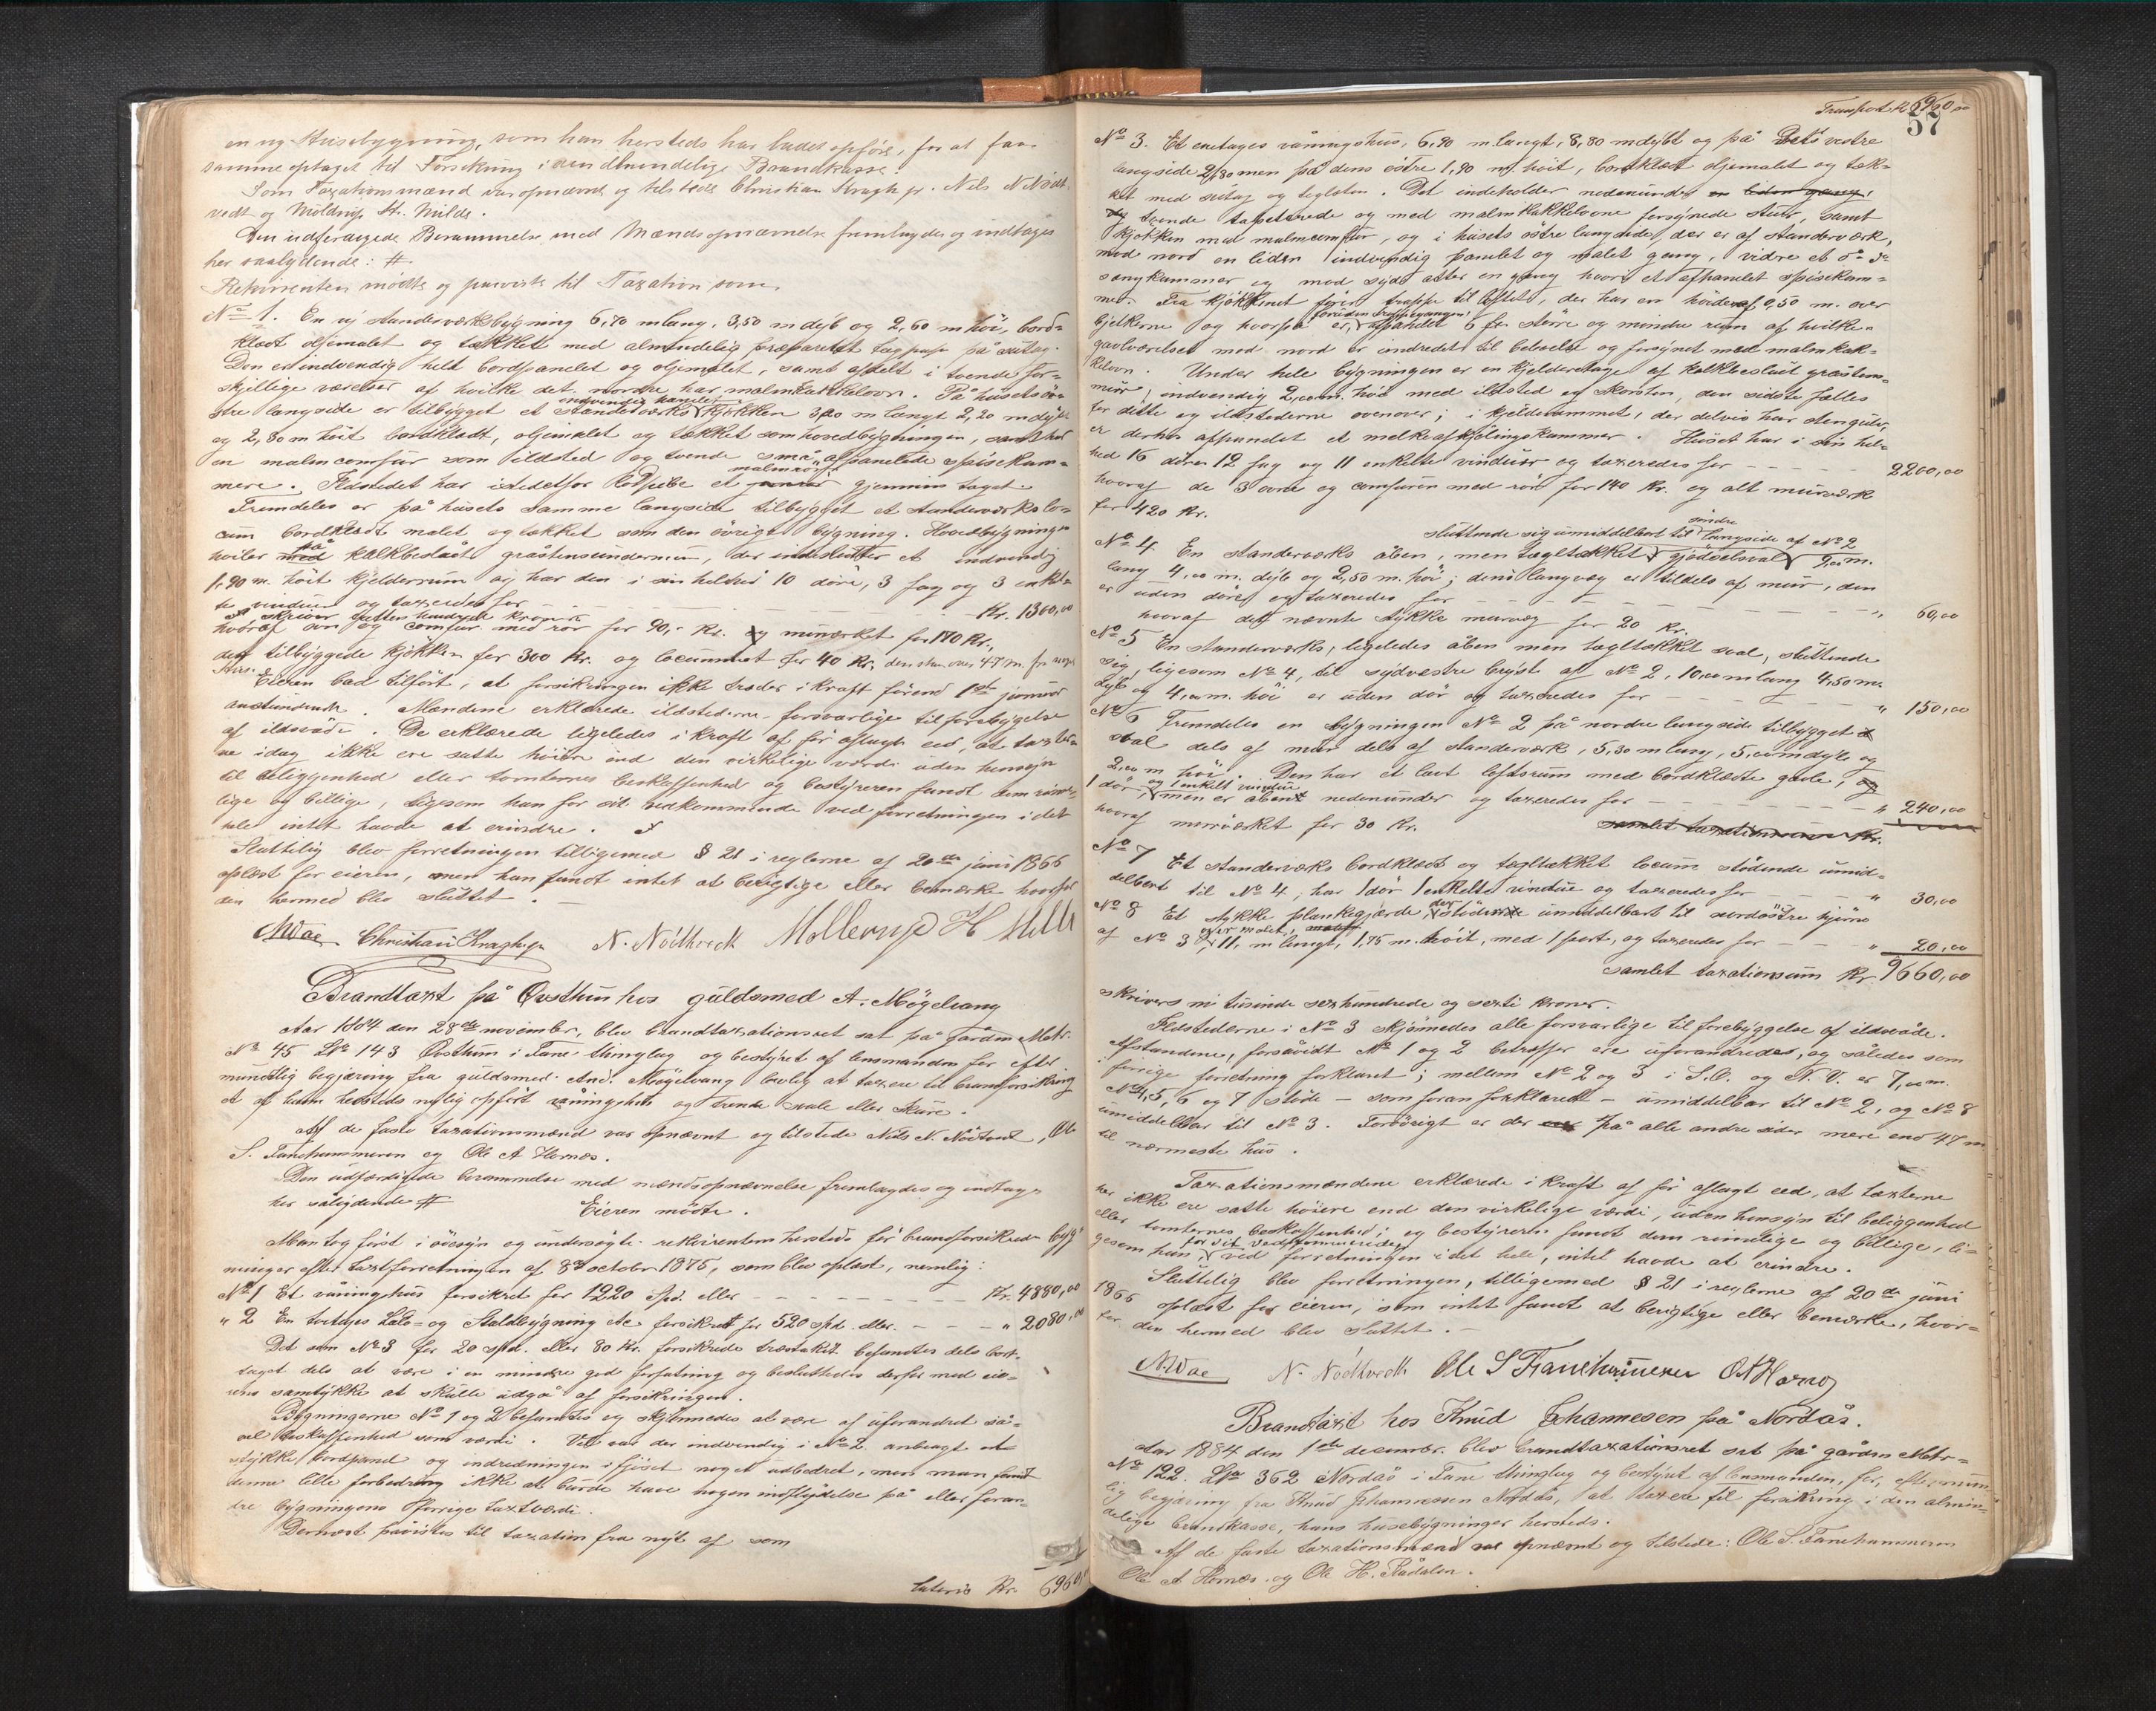 en ny Husebygning, som han hersteds har ladet opføre, for at faa
samme optaget til Forsikring i den almindelige Brandkasse.
Som Taxationsmænd var opnævnt og tilstede Christian Kragh jr. Nils N. Nödt-
vedt og Moldrup H. Milde.
Den udfærdigede Berammelse med Mænds opnævnelse fremlagdes og indtages
her saalydende: #
Rekvirenten mødte og paaviste til Taxation som
No 1. En ny standerværksbygning 6,70 m lang, 3,50 m dyb og 2,60 m høi, bord-
klædt oljemalet og tækket med almindelig præpareret tagpap på sutag.
Den er indvendig helt bordpanelet og oljemalet, samt afdelt i tvende for-
skjellige værelser af hvilke det nordre har malmkakkelovn. På husets ös-
tre langside er tilbygget et standerværks indvendig panelet kjökken 3,20 m langt 2,20 m dybt
og 2,80 m höit bordklædt, oljemalet og tækket som hovedbygningen, samt har
en malmcomfur som ildsted og tvende små afpanelede spisekam-
mere. Ildstedet har istedetfor Rödpibe et malmrör gjennem taget.
Fremdeles er på husets samme langside tilbygget et standerværks lo-
cum bordklædt malet og tækket som den övrige bygning. Hovedbygningen
hviler på kalkbeslået gråstensundermur, der indeslutter et indvendig
1,90 m. höit kjelderrum og har den i sin helhed 10 döre, 3 fag og 3 enkel-
te vinduer og taxeredes for - - - Kr. 1300,00
skriver tretten hundrede kroner
hvoraf ovn og comfur med rör for 90,- Kr. og murværket for 170 Kr.,
det tilbyggede kjökken for 300 Kr. og locummet for 40 Kr. den staar over 47 m. fra nogen
Hus.
Eieren bad tilfört, at forsikringen ikke træder i kraft förend 1ste januar
anstundende. Mændene erklærede ildstederne forsvarlige til forebygelse
af ildsvåde. De erklærede ligeledes i kraft af för aflagt eed, at taxter-
ne idag ikke ere satte höiere end den virkelige værdi uden hensyn
til beliggenhed eller tomternes beskaffenhed og bestyreren fandt dem rime-
lige og billige, ligesom han for sit vedkommende ved forretningen i det
hele intet havde at erindre.
Sluttelig blev forretningen tilligemed § 21 i reglerne af 20de juni 1866
oplæst for eieren, men han fandt intet at berigtige eller bemærke hvorfor
den hermed blev sluttet.
NWae Christian Kragh jr N. Nödtvedt Mollerup H Milde
Brandtaxt på Övsthun hos guldsmed A. Mögelvang
Aar 1884 den 28de november, blev brandtaxationsret sat på gården Matr.
No 45 LNo 143 Övsthun i Fane thinglag og bestyret af lensmanden for efter
mundtlig begjæring fra guldsmed And. Mögelvang lovlig at taxere til brandforsikring
et af ham hersteds nylig opfört våningshus og trende svale eller skure.
Af de faste taxationsmænd var opnævnt og tilstede Nils N. Nödtvedt, Ole
S. Fanehammeren og Ole A Hornæs.
Den udfærdigede berammelse med mændsopnævnelse fremlagdes og indtages
her sålydende # Eieren mödte.
Man tog först i öiesyn og undersögte rekvirentens hersteds för brandforsikrede byg-
ninger efter taxtforretningen af 8de october 1875, som blev oplæst, nemlig:
No 1 Et våningshus forsikret for 1220 Spd. eller - - - Kr. 4880,00
" 2 En toetages Lade- og Staldbygning &c forsikret for 520 spd. eller - - - " 2080,00
Det som No 3 for 20 spd. eller 80 Kr. forsikrede træskakt befandtes dels bort-
taget dels at være i en mindre god forfatning og besluttedes derfor med eie-
rens samtykke at skulle udgå af forsikringen.
Bygningerne No 1 og 2 befandtes og skjönnedes at være af uforandret så-
vel beskaffenhed som værdi. Vel var der indvendig i No 2 anbragt et
stykke bordpanel og indredningen i fjöset noget udbedret, men man fandt
denne lille forbedring ikke at burde have nogen indflydelse på eller foran-
dre bygningens forrige taxtværdi.
Dernæst påvistes til taxation fra nyt af som
Lateris Kr. 6960,
Transport Kr 6960,00
57
No 3. Et enetages våningshus, 6,90 m. langt, 8,80 m dybt og på dets vestre
langside 2,80 men på dens östre 1,90 m. höit, bordklædt oljemalet og tæk-
ket med sutag og teglsten. Det indeholder nedenunder en liden gang,
og tvende tapetserede og med malmkakkelovne forsynede stuer, samt
kjökken med malmcomfur, og i husets östre langside, der er af standerværk,
mod nord en liden indvendig panelet og malet gang, vidre et do do
sengkammer og mod syd atter en gang hvori et afpanelet spisekam-
mer. Fra kjökkenet förer trappe til loftet, der har en höide af 0,50 m. over
bjelkerne og hvorpå er, foruden trappegangen, afpanelet 6 fr. större og mindre rum af hvilke
gavlværelset mod nord er indredet til beboelse og forsynet med malmkak-
kelovn. Under hele bygningen er en kjelderetage af kalkbeslået gråstens-
mur, indvendig 2,00 m. höi med ildsted og skorsten, den sidste fælles
for dette og ildstederne ovenover; i kjelderummet, der delvis har stengulv,
er derhos afpanelet et melkeafkjölingskammer. Huset har i sin hel-
hed 16 döre 12 fag og 11 enkelte vinduer og taxeredes for - - - 2200,00
hvoraf de 3 ovne og comfuren med rör for 140 Kr. og alt murværk
for 420 Kr.
No 4. En standerværks åben, men tægltækket sluttende sig umiddelbart til söndre langside af No 2 gjödselsval 9,00 m.
lang 4,00 m. dyb og 2,50 m. höi; dens langvæg er tildels af mur, den
er uden döre og taxeredes for - - - " 60,00
hvoraf det nævnte stykke murvæg for 20 Kr.
No 5 En standerværks, ligeledes åben men tægltækket sval, sluttende
sig, ligesom No 4, til sydvestre bryst af No 2, 10,00 m lang 4,50 m.
dyb og 4,00 m. höi er uden dör og taxeredes for - - - " 150,00
No 6 Fremdeles en bygningen No 2 på nordre langside tilbygget
sval dels af mur dels af standerværk, 5,30 m lang, 5,00 m dyb og
2,00 m höi. Den har et lavt loftsrum med bordklædte gavle, og
1 dör, og 1 enkelt vindue men er åbent nedenunder og taxeredes for - - - " 240,00
hvoraf murværket for 30 Kr. samlet taxationssum Kr.
No 7 Et standerværks bordklædt og tægltækket locum stödende umid-
delbart til No 4, har 1 dör 1 enkelte vindue og taxeredes for - - - " 30,00
No 8 Et stykke plankegjærde, der stöder umiddelbart til nordöstre hjörne
af No 3 er malet, 11, m langt, 1,75 m. höit, med 1 port, og taxeredes for - - - " 20,00
samlet taxationsum Kr. 9660,00
skriver ni tusinde sexhundrede og sexti kroner.
Ildstederne i No 3 skjönnedes alle forsvarlige til forebyggelse af ildsvåde.
Afstandene, forsåvidt No 1 og 2 betræffer ere uforandrede, og således som
i forrige forretning forklaret; mellem No 2 og 3 i S.O. og N.V. er 7,00 m.
No 4, 5, 6 og 7 støde - som foran forklaret - umiddelbar til No 2, og No 8
umiddelbar til No 3. Forövrigt er der på alle andre sider mere end 47 m
til nærmeste hus.
Taxationsmændene erklærede i kraft af för aflagt eed, at taxterne
her ikke ere satte höiere end den virkelige værdi, uden hensyn til beliggenhed
eller tomternes beskaffenhed; og bestyreren fandt dem rimelige og billige, li-
gesom han for sit vedkommende ved forretningen i det hele, intet havde at erindre.
Sluttelig blev forretningen, tilligemed § 21 i reglerne af 20de juni
1866 oplæst for eieren, som intet fandt at berigtige eller bemærke, hvor-
for den hermed blev sluttet.-
NWae N. Nödtvedt Ole S Fanehammeren OAHornes
Brandtaxt hos Knud Johannesen på Nordås.
Aar 1884 den 1ste december. blev brandtaxationsret sat på gården Matr-
No 122. LNo 362 Nordås i Fane thinglag og bestyret af lensmanden, for, efter mun-
lig begjæring fra Knud Johannesen Nordås, at taxere til forsikring i den almin-
delige brandkasse, hans husebygninger hersteds.
Af de faste taxationsmænd var opnævnt og tilstede: Ole S. Fanehammeren
Ole A Hornæs og Ole H. Rådalen.